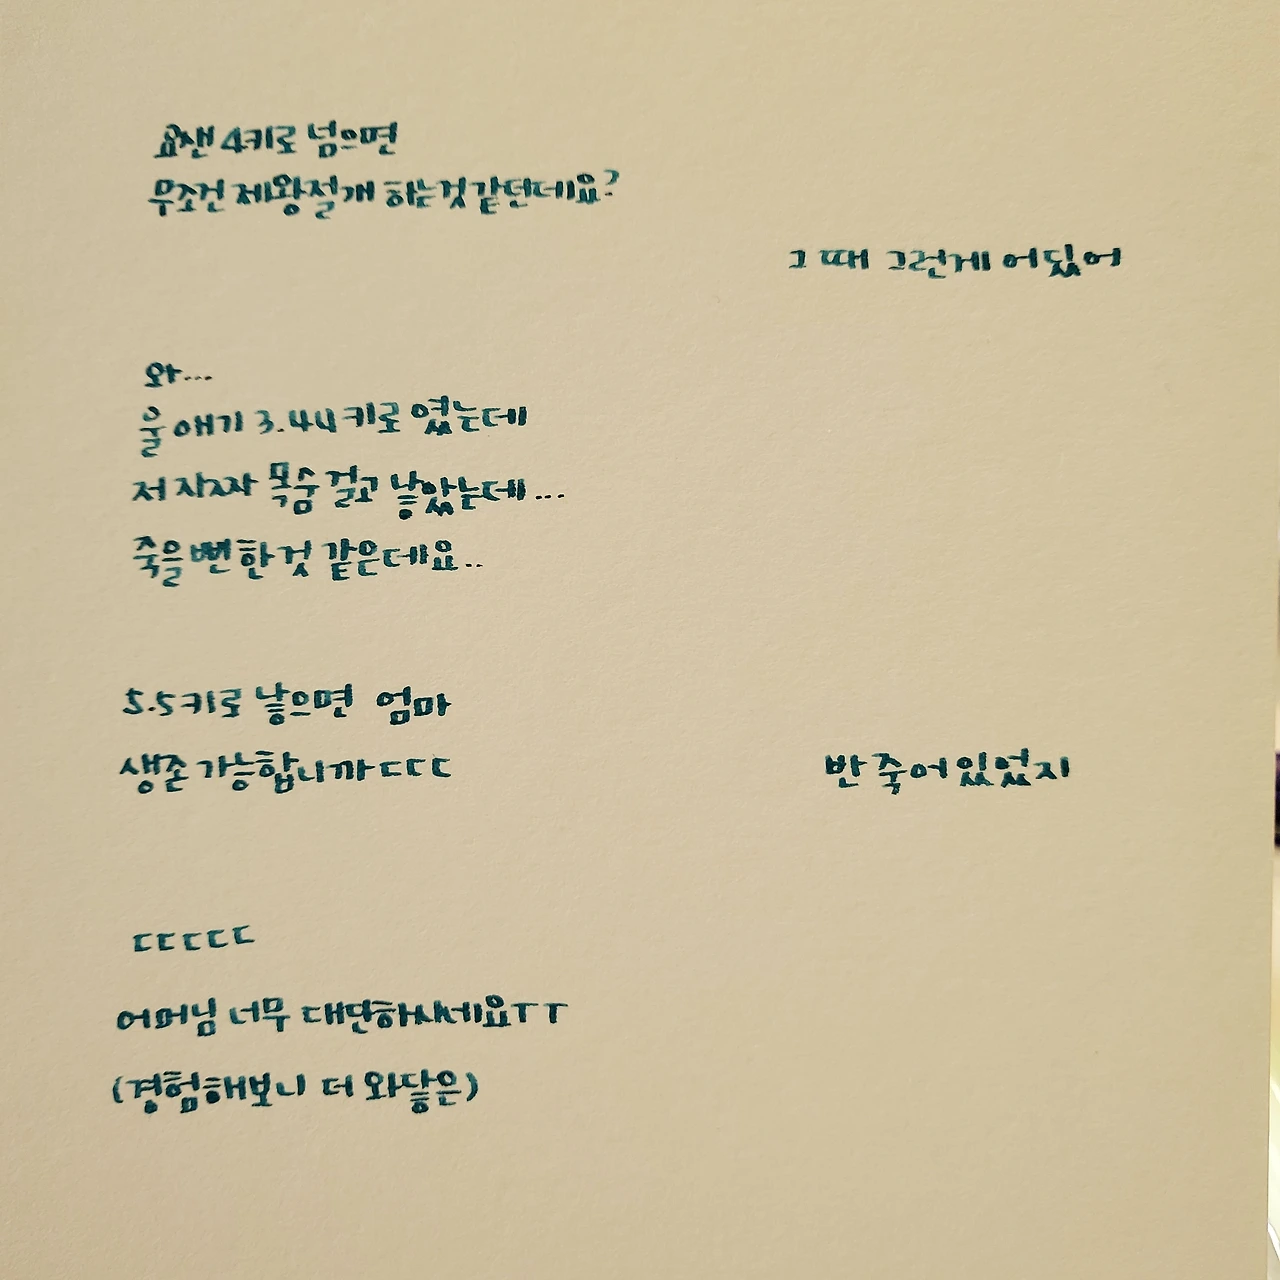 요샌 4키로 넘으면
무조건 제왕절개 하는것 같던데요?
그 때 그런게 어딨어
와...
울 애기 3.44키로 였는데
저 진짜 목숨 걸고 낳았는데...
죽을 뻔 한 것 같은데요..
5.5키로 낳으면 엄마
생존 가능합니까ㄷㄷㄷ
반 죽어있었지
ㄷㄷㄷㄷㄷ
어머님 너무 대단하시네요ㅜㅜ
(경험해보니 더 와닿은)